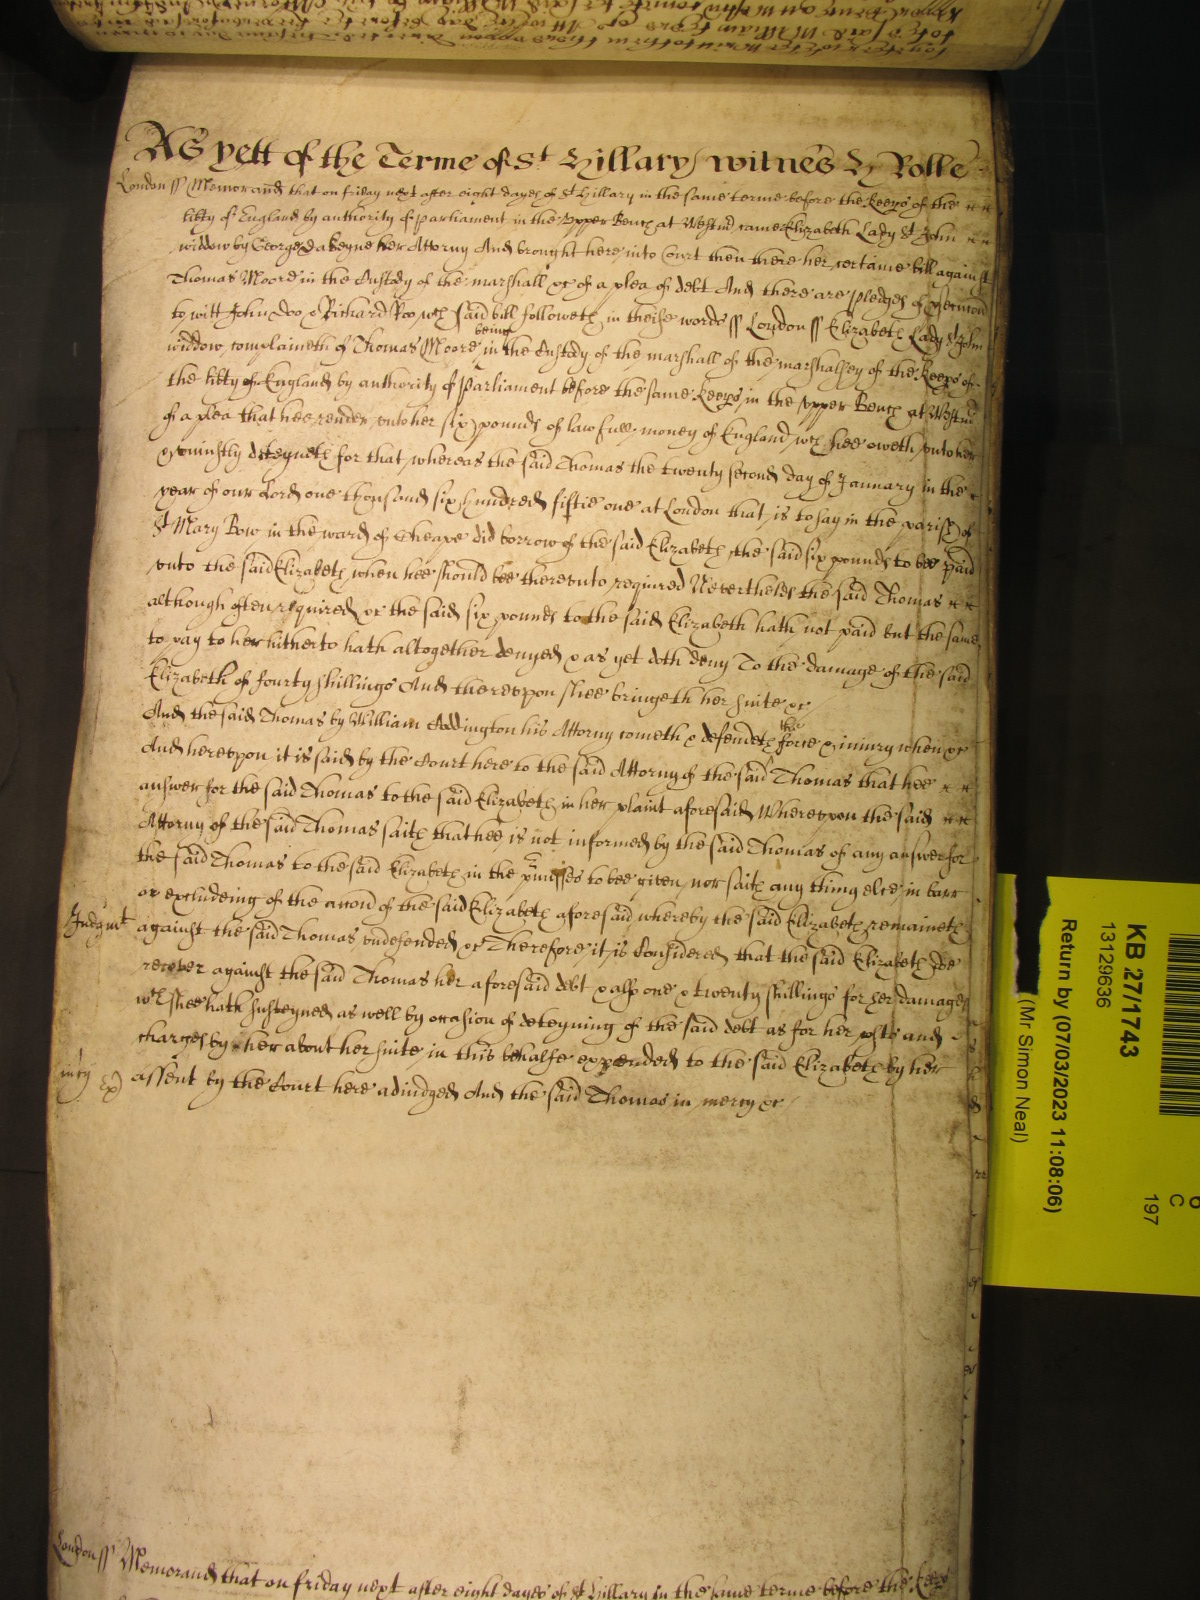 As yett of the Terme of St Hillary witnes H Rolle
London ss Memorand that on friday next after eight dayes of St Hillary in the same terme before the Keeps of the
libty of England by authority of parliament in the upper Bench at Westmr came Elizabeth Lady St John
widdow by George her Attorny And brought here into Court then there her certaine bill against
Thomas Moore in the Custody of the marshall &c of a plea of debt And there are pledges of
to witt John Doo & Richard Roo wch said bill followeth in theise words ss London ss Elizabeth Lady St John
widdow complaineth of Thomas Moore being in the Custody of the marshall of the marshalsey of the Keeps of
the libty of England by authority of Parliament before the same Keeps in the upper Bench at Westmr
of a plea that hee render unto her six pounds of lawfull money of England wch hee oweth unto her
& uniustly deteyneth for that whereas the said Thomas the twenty second day of January in the
year of our Lord one thousand six hundred fiftie one at London that is to say in the parish of
St Mary Bow in the ward of Cheape did borrow of the said Elizabeth the said six pounds to bee paid
unto the said Elizabeth when hee should bee thereunto required Neverthelesse the said Thomas
although often required &c the said six pounds to the said Elizabeth hath not paid but the same
to pay to her hitherto hath altogether denyed & as yet doth deny To the damage of the said
Elizabeth of fourty shillings And thereupon shee bringeth her suite &c
And the said Thomas by William Addington his Attorny cometh & defendeth the force & iniury when &c
And hereupon it is said by the Court here to the said Attorny of the said Thomas that hee
answer for the said Thomas to the said Elizabeth in her plaint aforesaid Whereupon the said
Attorny of the said Thomas saith that hee is not informed by the said Thomas of any answer for
the said Thomas to the said Elizabeth in the pmisses to bee given nor saith any thing else in barr
or excludeing of the accon of the said Elizabeth aforesaid whereby the said Elizabeth remaineth
Iudgmt against the said Thomas undefended &c Therefore it is Considered that the said Elizabeth doe
recover against the said Thomas her aforesaid debt & also one & twenty shillings for her damages
wch shee hath susteyned as well by occasion of deteyning of the said debt as for her costs and
charges by her about her suite in this behalfe expended to the said Elizabeth by her
mcy assent by the Court here adiudged And the said Thomas in mercy &c
London ss Memorand that on friday next after eight dayes of St Hillary in the same terme before the Keeps
KB 27/1743
13129636
Return by (07/03/2023 11:08:06)
(Mr Simon Neal)
6
C
197